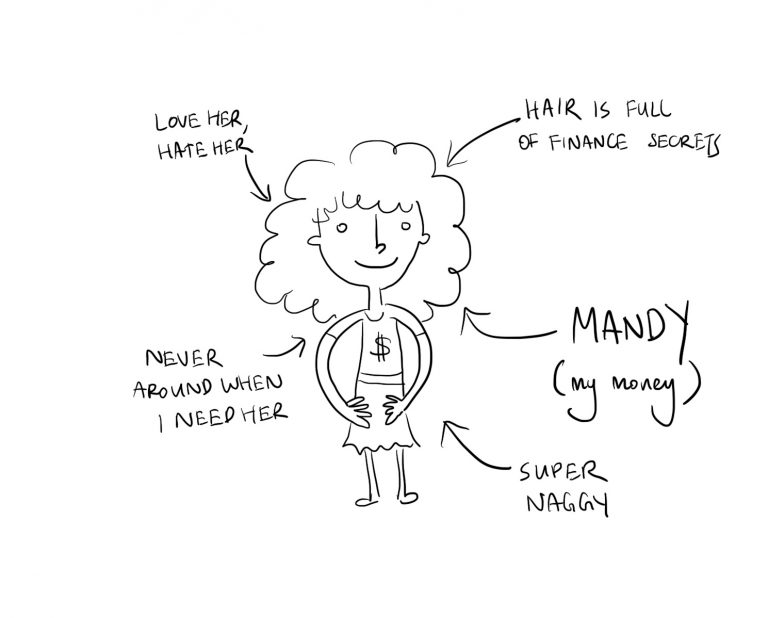 LOVE HER,
HATE HER
HAIR IS FULL
OF FINANCE SECRETS
MANDY
(my money)
NEVER
AROUND WHEN
I NEED HER
$
SUPER
NAGGY